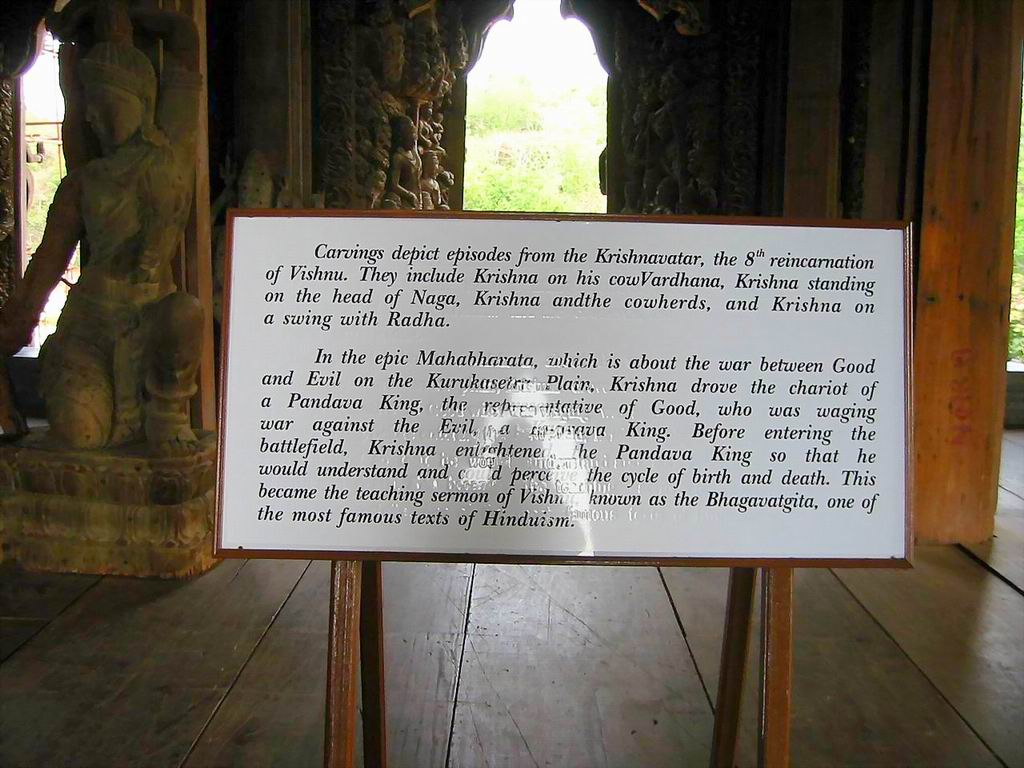 Carvings depict episodes from the Krishnavatar, the 8th reincarnation
of Vishnu. They include Krishna on his cowVardhana, Krishna standing
on the head of Naga, Krishna andthe cowherds, and Krishna on
a swing with Radha.
In the epic Mahabharata, which is about the war between Good
and Evil on the Kurukasetra Plain, Krishna drove the chariot of
a Pandava King, the representative of Good, who was waging
war against the Evil, a King. Before entering the
battlefield, Krishna enlightened the Pandava King so that he
would understand and could perceive the cycle of birth and death. This
became the teaching sermon of Vishnu, known as the Bhagavatgita, one of
the most famous texts of Hinduism.